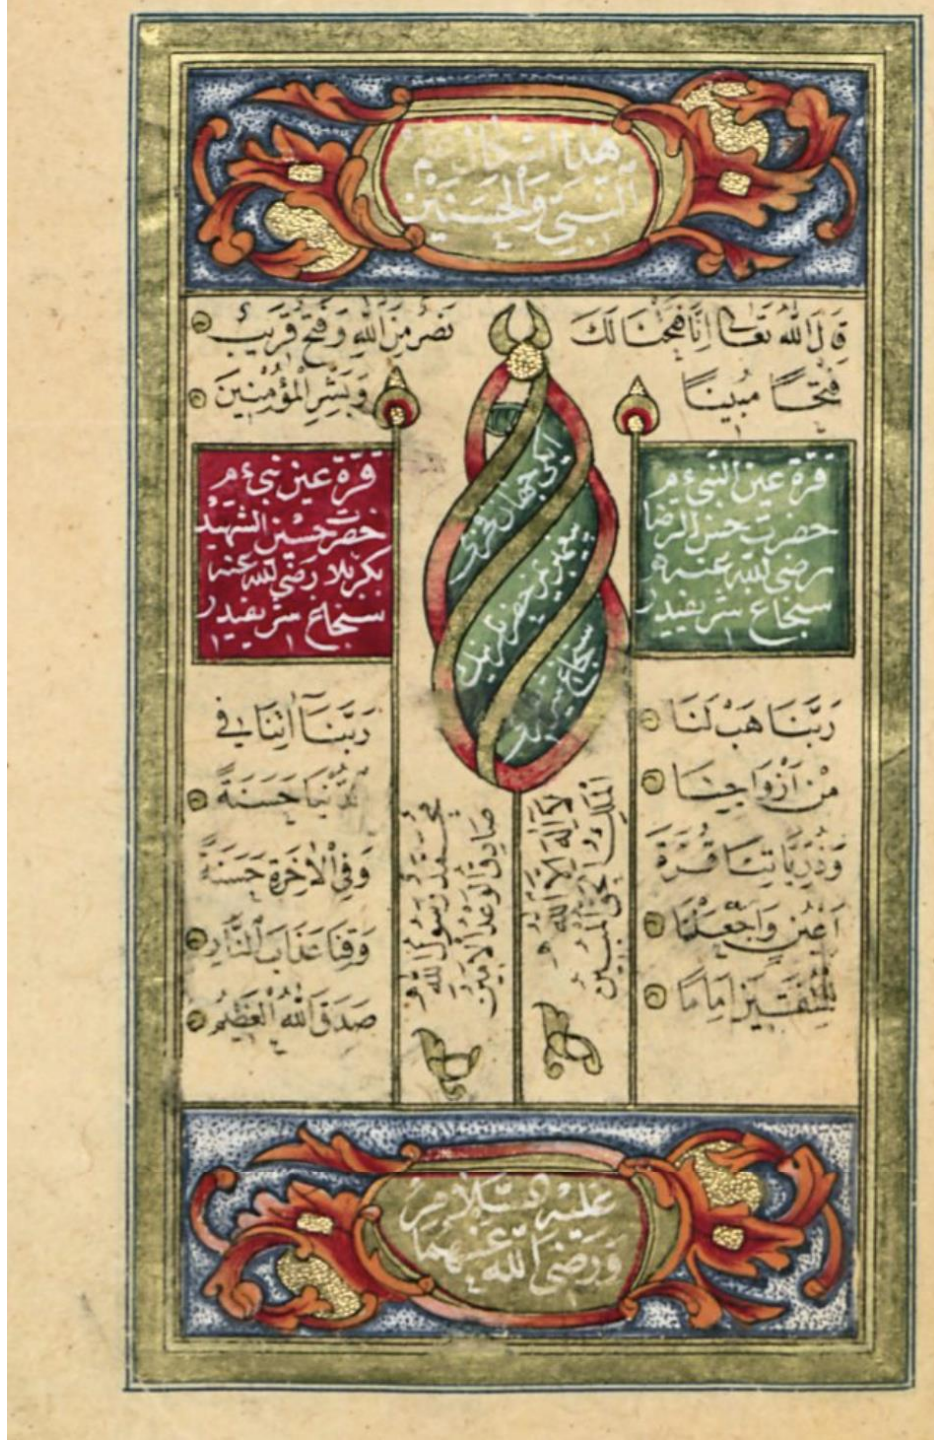 هذا اشكال علم
النبي والحسنين
قال الله تعالى انا فتحنا لك
فتحًا مبينًا
نصر من الله وفتح قريب
وبشر المؤمنين
قرة عين النبيء م
حضرت حسن الرضا
رضي الله عنه
سنجاغ شريفيدر
ايكي جهان فخري
پيغمبر حضرتلرينك
سنجاغ
قرة عين نبيء م
حضرت حسين الشهيد
بكربلا رضي الله عنه
سنجاغ شريفيدر
رَبَّنَا هَبْ لَنَا
مِنْ اَزْوَاجِنَا
وَذُرِّيَّاتِنَا قُرَّةَ
اَعْيُنٍ وَاجْعَلْنَا
لِلْمُتَّقِينَ اِمَامًا
لا اله الا الله
الملك الحق المبين
محمد رسول الله
صادق الوعد الامين
رَبَّنَا اٰتِنَا فِي
الدُّنْيَا حَسَنَةً
وَفِي الْاٰخِرَةِ حَسَنَةً
وَقِنَا عَذَابَ النَّارِ
صَدَقَ اللهُ الْعَظِيمُ
عليه السلام
ورضي الله عنهما